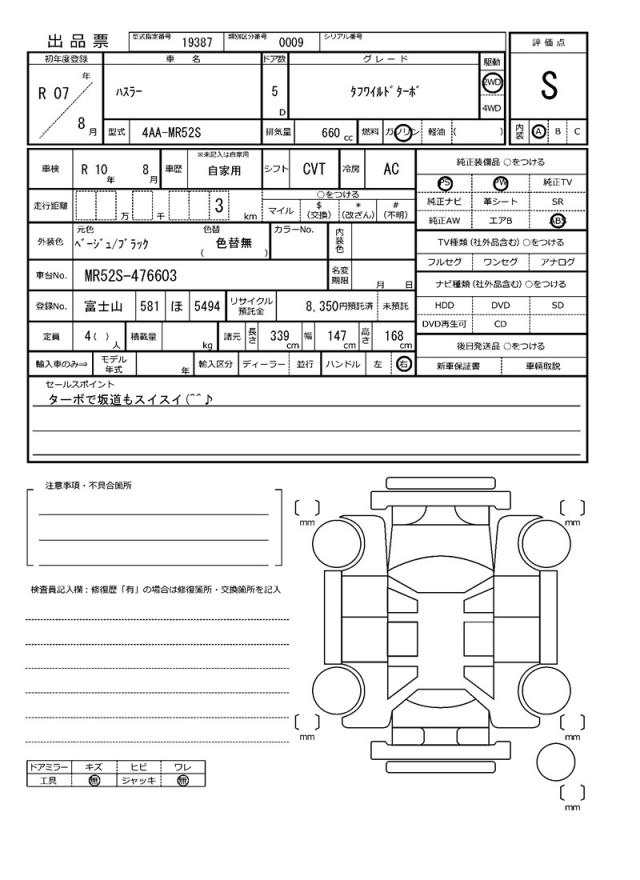 出品票 型式指定番号 19387 類別区分番号 0009 シリアル番号
評価点
S
内装 A B C
初年度登録 車名 ドア数 グレード 駆動
R 07 年 8 月 ハスラー 5 D タフワイルドターボ 2WD 4WD
型式 4AA-MR52S 排気量 660 cc 燃料 ガソリン 軽油 ( )
車検 R 10 年 8 月 車歴 ※未記入は自家用 自家用 シフト CVT 冷房 AC
走行距離 万 千 3 km ○をつける マイル $(交換) *(改ざん) #(不明)
外装色 元色 ベージュ/ブラック 色替 ( 色替無 ) カラーNo. 内装色
車台No. MR52S-476603 名変期限 月 日
登録No. 富士山 581 ほ 5494 リサイクル預託金 8,350円預託済 未預託
定員 4( ) 人 積載量 kg 諸元 長さ 339 cm 幅 147 cm 高さ 168 cm
輸入車のみ⇒ モデル年式 年 輸入区分 ディーラー 並行 ハンドル 左 右
純正装備品 ○をつける
PS PW 純正TV
純正ナビ 革シート SR
純正AW エアB ABS
TV種類 (社外品含む) ○をつける
フルセグ ワンセグ アナログ
ナビ種類 (社外品含む) ○をつける
HDD DVD SD
DVD再生可 CD
後日発送品 ○をつける
新車保証書 車輌取説
セールスポイント
ターボで坂道もスイスイ(^^♪
注意事項・不具合箇所
検査員記入欄:修復歴「有」の場合は修復箇所・交換箇所を記入
〔 〕mm 〔 〕mm
〔 〕mm 〔 〕mm
〔 〕mm
ドアミラー キズ ヒビ ワレ
工具 無 ジャッキ 無